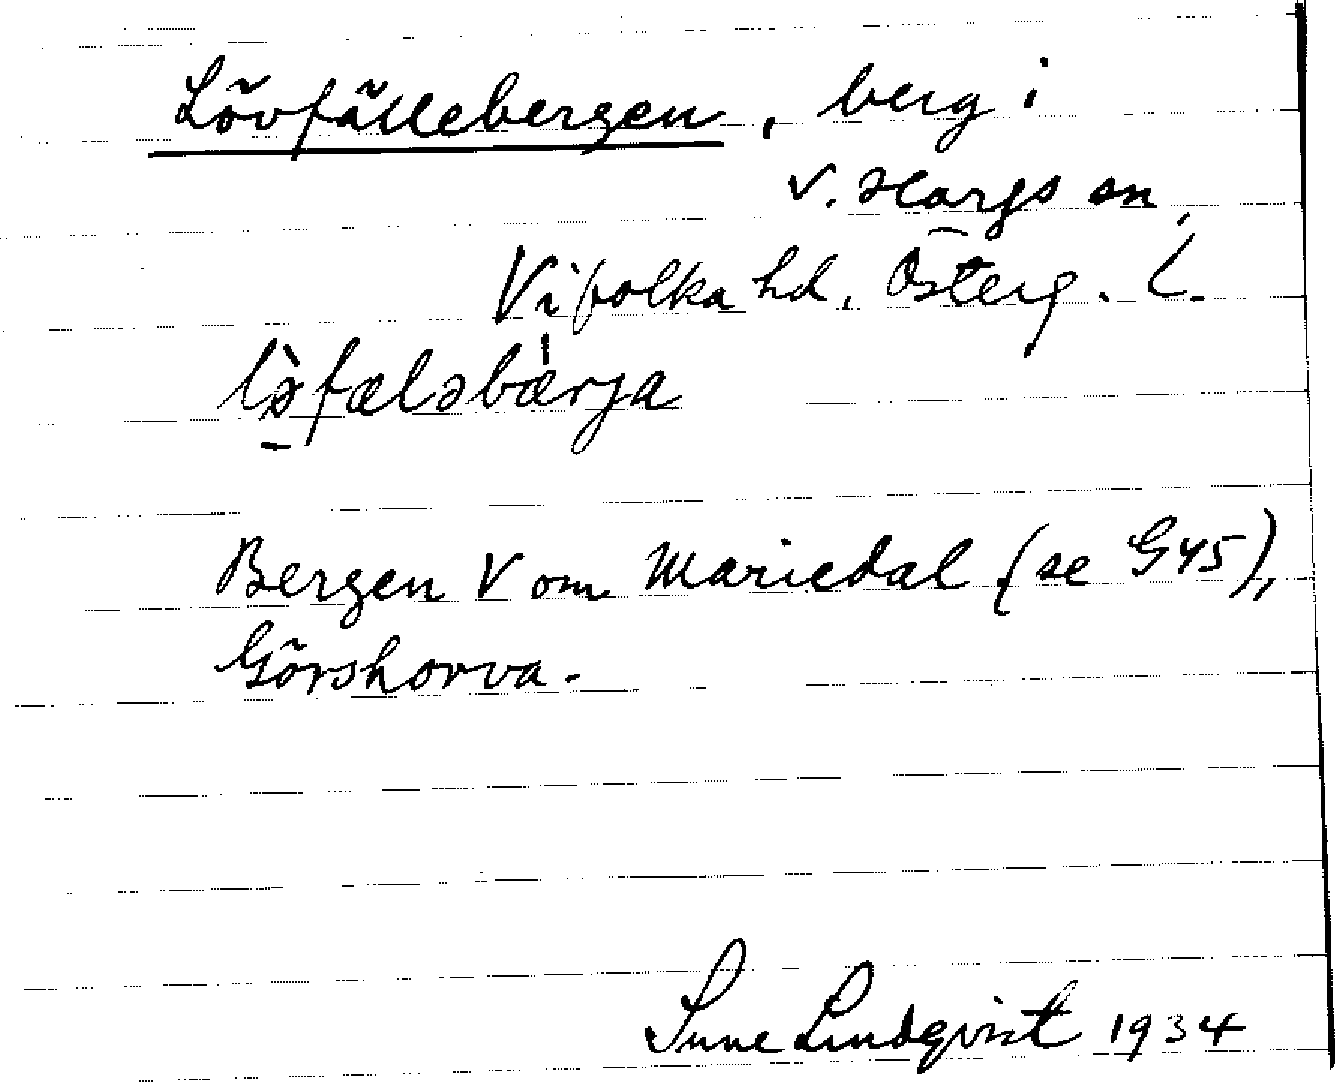 Lövfällebergen, berg i
V. Hargs sn,
Vifolka hd, Österg. L.
lə̀fæləbærja
Bergen V om Mariedal (se G45),
Görshorva.
Sune Lindqvist 1934